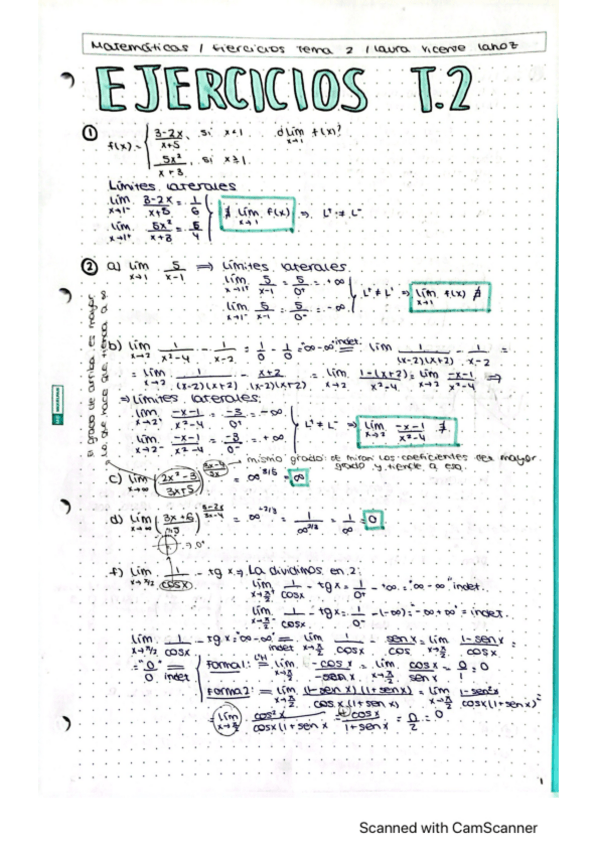 Matemáticas / Ejercicios Tema 2 / Laura Vicente Lanoz
EJERCICIOS T.2
① f(x) = { 3-2x / x+5, si x<1 ¿ lim x→1 f(x)?
5x² / x+3, si x≥1
Límites laterales
lim x→1⁻ 3-2x / x+5 = 1/6
lim x→1⁺ 5x² / x+3 = 5/4
∄ lim x→1 f(x) ⇒ L⁺ ≠ L⁻
② a) lim x→1 5 / x-1 ⇒ Límites laterales
lim x→1⁺ 5 / x-1 = 5 / 0⁺ = +∞
lim x→1⁻ 5 / x-1 = 5 / 0⁻ = -∞
L⁺ ≠ L⁻ ⇒ lim x→1 f(x) ∄
El grado de arriba es mayor
lo que hace que tienda a ∞
b) lim x→2 1 / x²-4 - 1 / x-2 = 1/0 - 1/0 = "∞-∞" indet = lim x→2 1 / (x-2)(x+2) - 1 / x-2 =
= lim x→2 1 / (x-2)(x+2) - x+2 / (x-2)(x+2) = lim x→2 1-(x+2) / x²-4 = lim x→2 -x-1 / x²-4 ⇒
⇒ Límites laterales:
lim x→2⁺ -x-1 / x²-4 = -3 / 0⁺ = -∞
lim x→2⁻ -x-1 / x²-4 = -3 / 0⁻ = +∞
L⁺ ≠ L⁻ ⇒ lim x→2 -x-1 / x²-4 ∄
mismo grado: se miran los coeficientes del mayor
grado y tiende a eso.
c) lim x→∞ (2x²-3 / 3x+5) = ∞ = ∞
d) lim x→∞ (3x+6) = ∞^-2/3 = 1 / ∞^2/3 = 1/∞ = 0
→ 0⁺
f) lim x→π/2 1 / cosx - tg x ⇒ La dividimos en 2:
lim x→π/2 1 / cosx - tg x = 1 / 0⁺ - +∞ = "∞-∞" indet.
lim x→π/2 1 / cosx - tg x = 1 / 0⁻ - (-∞) = "-∞+∞" = indet.
lim x→π/2 1 / cosx - tg x = "∞-∞" indet = lim x→π/2 1 / cosx - senx / cos = lim x→π/2 1-senx / cosx =
= "0/0" indet
Forma 1: L'H = lim x→π/2 -cosx / -senx = lim x→π/2 cosx / senx = 0/1 = 0
Forma 2: = lim x→π/2 (1-senx)(1+senx) / cosx(1+senx) = lim x→π/2 1-sen²x / cosx(1+senx) =
= lim x→π/2 cos²x / cosx(1+senx = cosx / 1+senx = 0/2 = 0
1
Scanned with CamScanner